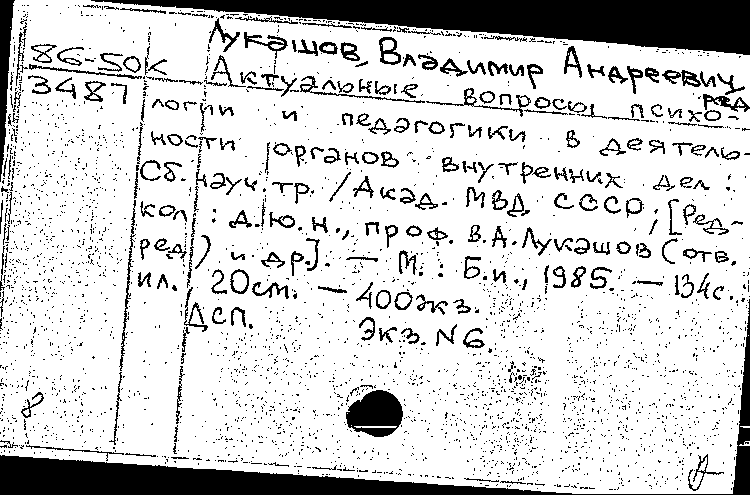 Лукашов, Владимир Андреевич,
ред.
86-50к
3487
Актуальные вопросы психо-
логии и педагогики в деятель-
ности органов внутренних дел :
Сб. науч. тр. / Акад. МВД СССР; [Ред-
кол : д.ю.н., проф. В.А.Лукашов (отв.
ред) и др.]. — М. : Б.и., 1985. — 134с.
ил., 20см. — 400экз.
Дсп. Экз. N6.